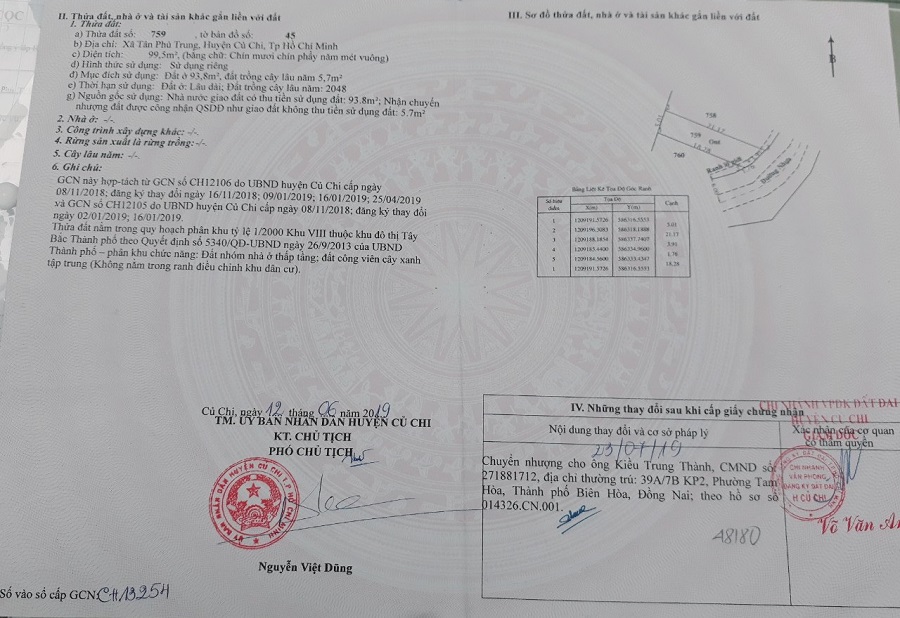 II. Thửa đất, nhà ở và tài sản khác gắn liền với đất
1. Thửa đất:
a) Thửa đất số: 759 , tờ bản đồ số: 45
b) Địa chỉ: Xã Tân Phú Trung, Huyện Củ Chi, Tp Hồ Chí Minh
c) Diện tích: 99,5m², (bằng chữ: Chín mươi chín phẩy năm mét vuông)
d) Hình thức sử dụng: Sử dụng riêng
đ) Mục đích sử dụng: Đất ở 93,8m², đất trồng cây lâu năm 5,7m²
e) Thời hạn sử dụng: Đất ở: Lâu dài; Đất trồng cây lâu năm: 2048
g) Nguồn gốc sử dụng: Nhà nước giao đất có thu tiền sử dụng đất: 93.8m²; Nhận chuyển
nhượng đất được công nhận QSDĐ như giao đất không thu tiền sử dụng đất: 5.7m²
2. Nhà ở: -/-
3. Công trình xây dựng khác: -/-
4. Rừng sản xuất là rừng trồng:-/-
5. Cây lâu năm: -/-
6. Ghi chú:
GCN này hợp-tách từ GCN số CH12106 do UBND huyện Củ Chi cấp ngày
08/11/2018; đăng ký thay đổi ngày 16/11/2018; 09/01/2019; 16/01/2019; 25/04/2019
và GCN số CH12105 do UBND huyện Củ Chi cấp ngày 08/11/2018; đăng ký thay đổi
ngày 02/01/2019; 16/01/2019.
Thửa đất nằm trong quy hoạch phân khu tỷ lệ 1/2000 Khu VIII thuộc khu đô thị Tây
Bắc Thành phố theo Quyết định số 5340/QĐ-UBND ngày 26/9/2013 của UBND
Thành phố – phân khu chức năng: Đất nhóm nhà ở thấp tầng; đất công viên cây xanh
tập trung (Không nằm trong ranh điều chỉnh khu dân cư).
Củ Chi, ngày 12 tháng 06 năm 2019
TM. ỦY BAN NHÂN DÂN HUYỆN CỦ CHI
KT. CHỦ TỊCH
PHÓ CHỦ TỊCH
Nguyễn Việt Dũng
Số vào sổ cấp GCN: CH13254
III. Sơ đồ thửa đất, nhà ở và tài sản khác gắn liền với đất
B
758
759
760
Đường Nhựa
Bảng Liệt Kê Tọa Độ Góc Ranh
Số hiệu điểm
Tọa Độ
X(m)
Y(m)
Cạnh
IV. Những thay đổi sau khi cấp giấy chứng nhận
Nội dung thay đổi và cơ sở pháp lý
Xác nhận của cơ quan
có thẩm quyền
CHI NHÁNH VPĐK ĐẤT ĐAI
HUYỆN CỦ CHI
GIÁM ĐỐC
Chuyển nhượng cho ông Kiều Trung Thành, CMND số
271881712, địa chỉ thường trú: 39A/7B KP2, Phường Tam
Hòa, Thành phố Biên Hòa, Đồng Nai; theo hồ sơ số
014326.CN.001.
CHI NHÁNH
VĂN PHÒNG
ĐĂNG KÝ ĐẤT ĐAI
H CỦ CHI
48180
Võ Văn